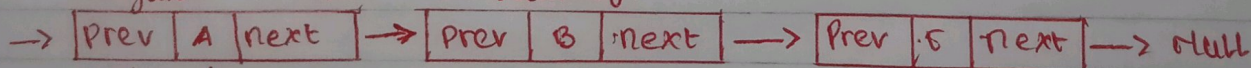 → | Prev | A | next | → | Prev | B | next | → | Prev | .5 | next | → Null